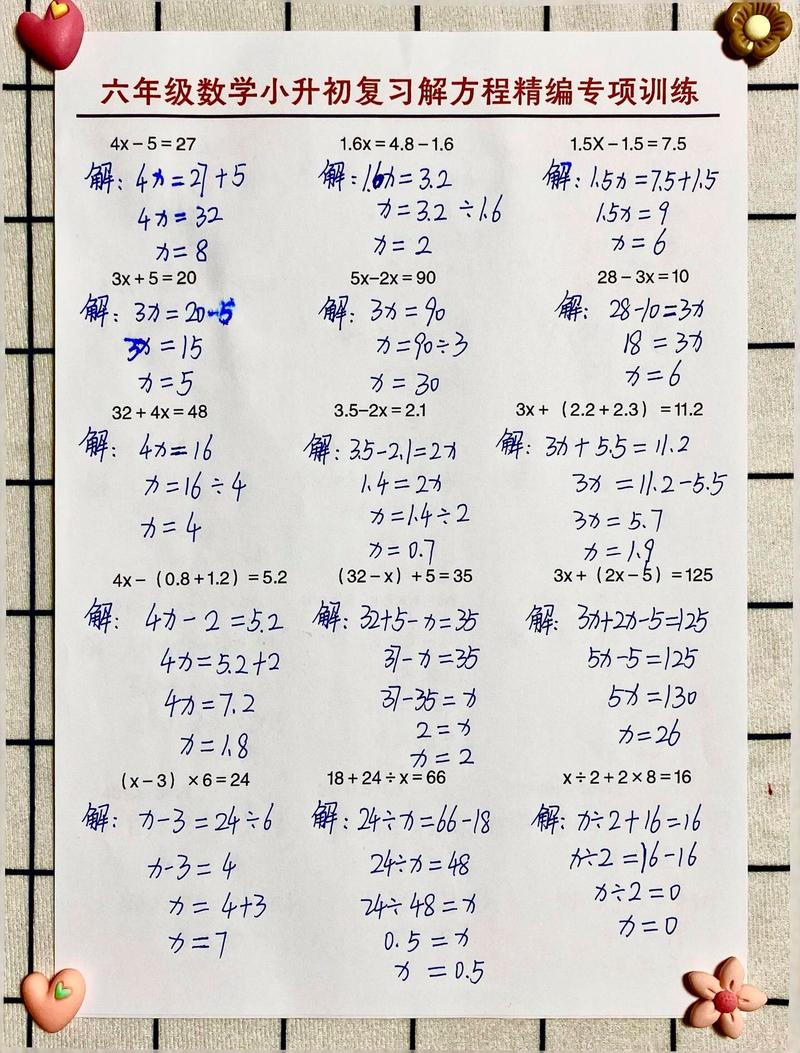 六年级数学小升初复习解方程精编专项训练
4x－5＝27
解：4x＝27+5
4x＝32
x＝8
1.6x＝4.8－1.6
解：1.6x＝3.2
x＝3.2÷1.6
x＝2
1.5X－1.5＝7.5
解：1.5x＝7.5+1.5
1.5x＝9
x＝6
3x＋5＝20
解：3x＝20-5
3x＝15
x＝5
5x－2x＝90
解：3x＝90
x＝90÷3
x＝30
28－3x＝10
解：28-10＝3x
18＝3x
x＝6
32＋4x＝48
解：4x＝16
x＝16÷4
x＝4
3.5－2x＝2.1
解：3.5-2.1＝2x
1.4＝2x
x＝1.4÷2
x＝0.7
3x＋（2.2＋2.3）＝11.2
解：3x+5.5＝11.2
3x＝11.2-5.5
3x＝5.7
x＝1.9
4x－（0.8＋1.2）＝5.2
解：4x-2＝5.2
4x＝5.2+2
4x＝7.2
x＝1.8
（32－x）＋5＝35
解：32+5-x＝35
37-x＝35
37-35＝x
2＝x
x＝2
3x＋（2x－5）＝125
解：3x+2x-5＝125
5x-5＝125
5x＝130
x＝26
（x－3）×6＝24
解：x-3＝24÷6
x-3＝4
x＝4+3
x＝7
18＋24÷x＝66
解：24÷x＝66-18
24÷x＝48
24÷48＝x
0.5＝x
x＝0.5
x÷2＋2×8＝16
解：x÷2+16＝16
x÷2＝16-16
x÷2＝0
x＝0